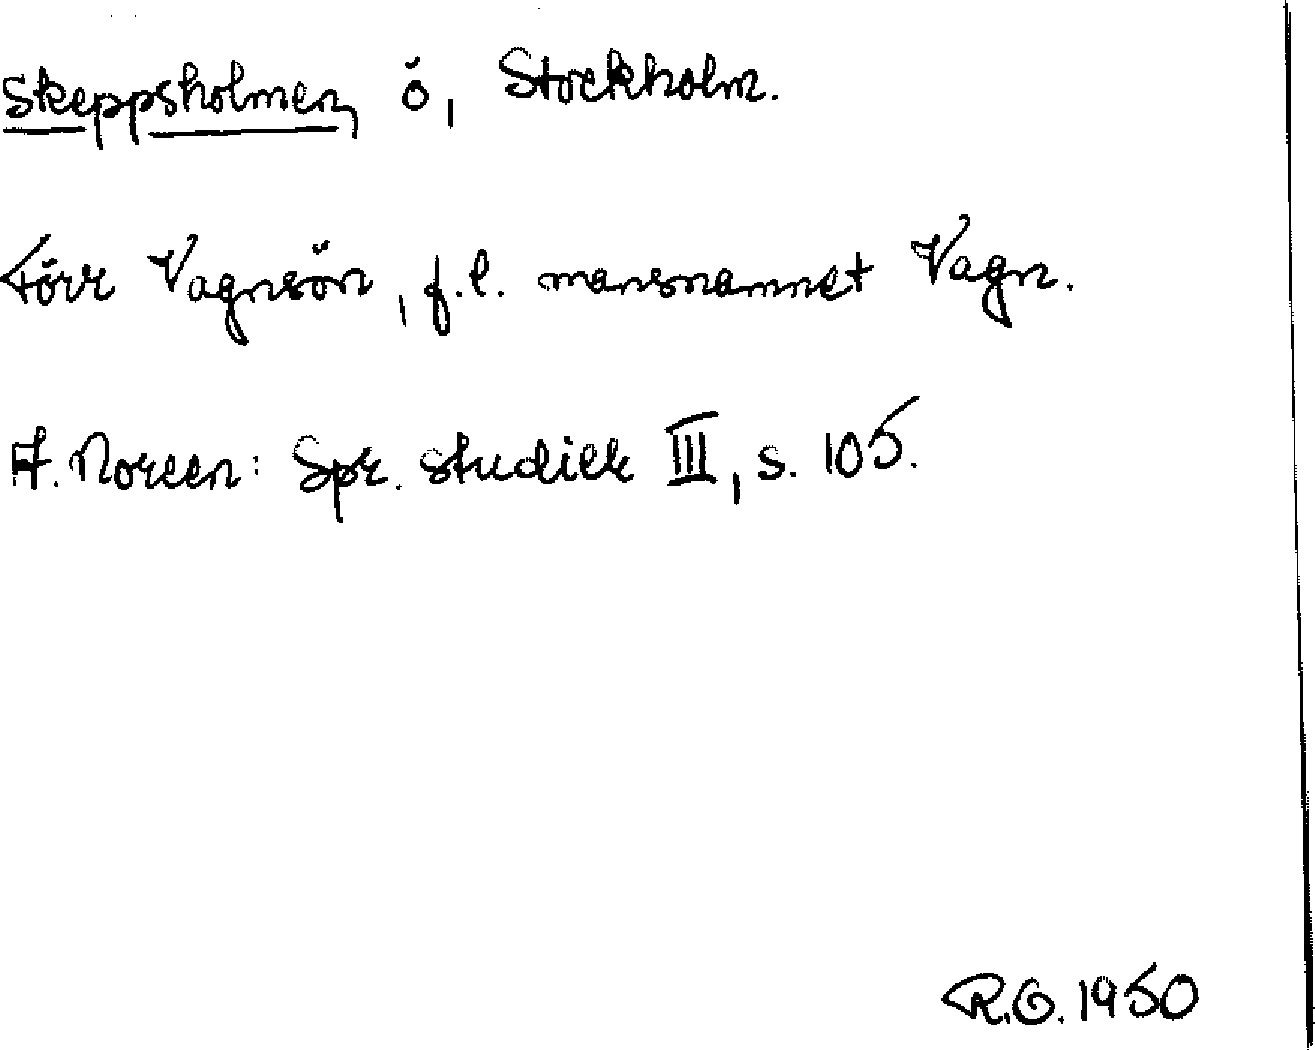 Skeppsholmen, ö, Stockholm.
Förr Vagnsön, f.l. mansnamnet Vagn.
A. Noreen: Spr. studier III, s. 105.
R.O. 1950